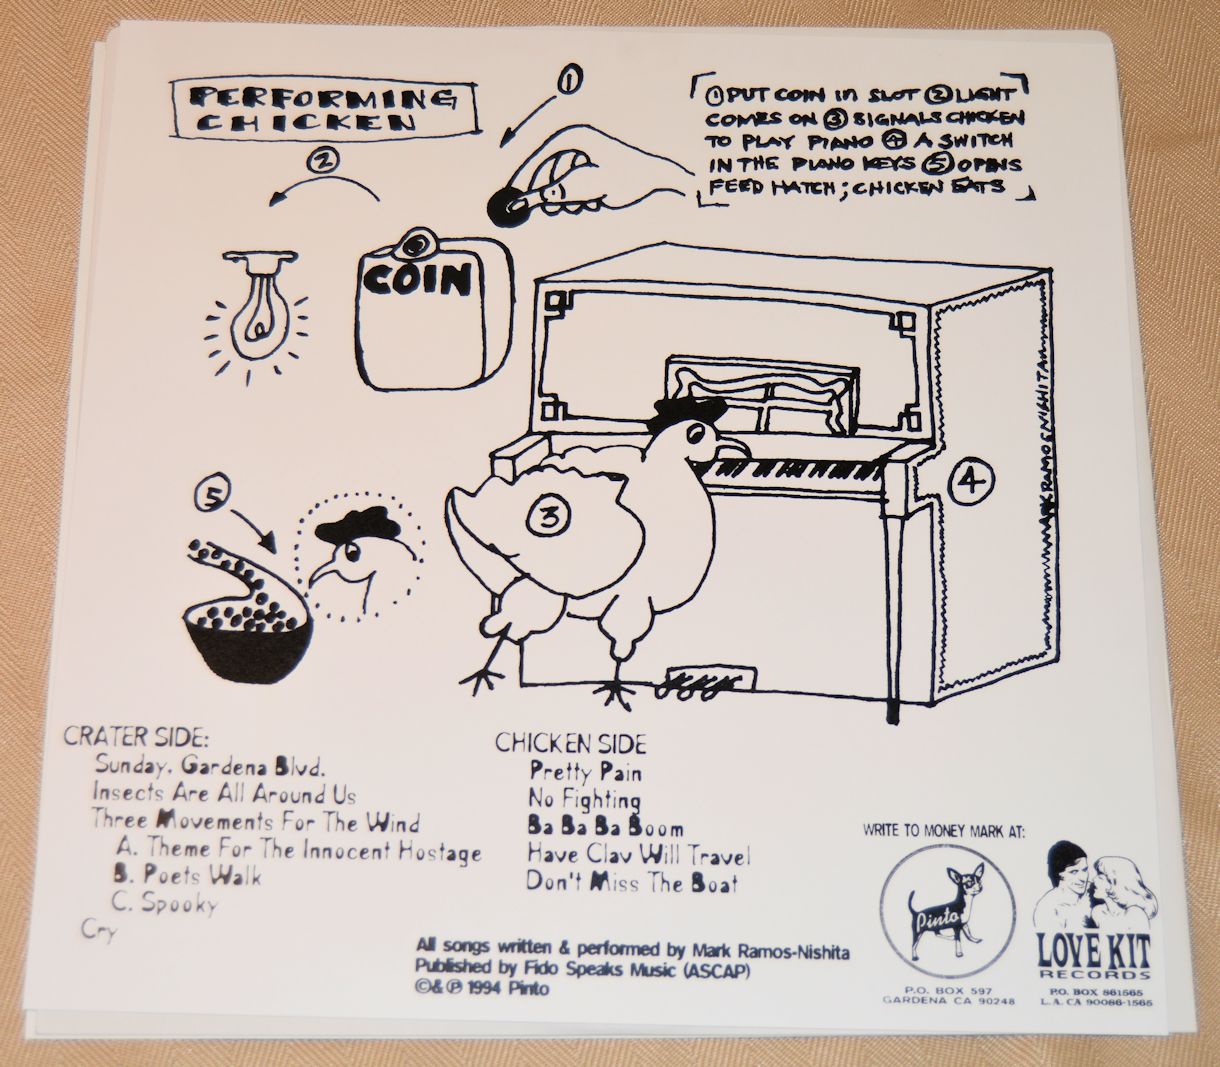 PERFORMING
CHICKEN
①
②
①PUT COIN in SLOT ②LIGHT
COMES ON ③ SIGNALS CHICKEN
TO PLAY PIANO ④ A SWITCH
IN THE PIANO KEYS ⑤ OPENS
FEED HATCH; CHICKEN EATS
COIN
③
④
⑤
MARK RAMOS NISHITA
CRATER SIDE:
Sunday, Gardena Blvd.
Insects Are All Around Us
Three Movements For The Wind
A. Theme For The Innocent Hostage
B. Poets Walk
C. Spooky
Cry
CHICKEN SIDE
Pretty Pain
No Fighting
Ba Ba Ba Boom
Have Clav Will Travel
Don't Miss The Boat
All songs written & performed by Mark Ramos-Nishita
Published by Fido Speaks Music (ASCAP)
©& ℗ 1994 Pinto
WRITE TO MONEY MARK AT:
Pinto
P.O. BOX 597
GARDENA CA 90248
LOVE KIT
RECORDS
P.O. BOX 861565
L.A. CA 90086-1565